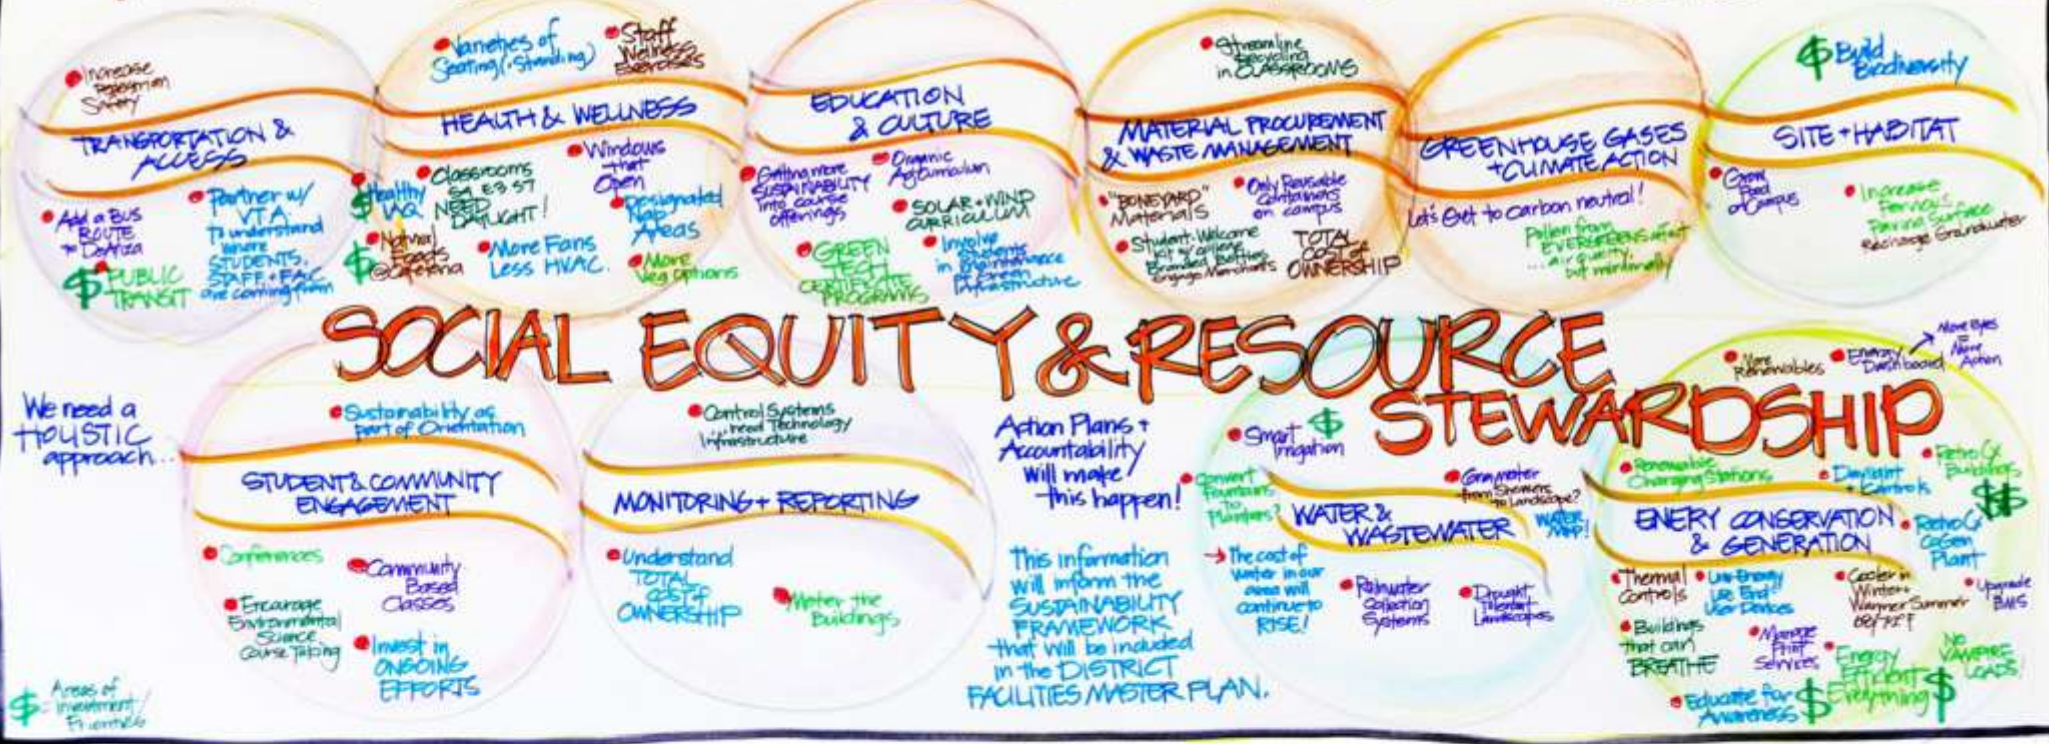 Increase
Pedestrian
Safety
TRANSPORTATION &
ACCESS
Add a BUS
ROUTE
to DeAnza
$ PUBLIC
TRANSIT
Partner w/
VTA
to understand
where
STUDENTS,
STAFF + FAC
are coming from
Varieties of
Seating (+Standing)
Staff
Wellness
Exercises
HEALTH & WELLNESS
$ Healthy
IAQ
$ Natural
Foods
@Cafeteria
Classrooms
S4 E3 S7
NEED
DAYLIGHT!
More Fans
Less HVAC.
Windows
that
Open
Designated
Nap
Areas
More
Veg Options
EDUCATION
& CULTURE
Getting more
SUSTAINABILITY
into course
offerings
GREEN
TECH
CERTIFICATE
PROGRAMS
Organic
Ag Curriculum
SOLAR + WIND
CURRICULUM
Involve
Students
in Maintenance
of Green
Infrastructure
Streamline
Recycling
in CLASSROOMS
MATERIAL PROCUREMENT
& WASTE MANAGEMENT
"BONEYARD"
Materials
Student Welcome
Branded Bottles
Engage Merchants
Only Reusable
Containers
on campus
TOTAL
COST of
OWNERSHIP
GREENHOUSE GASES
+ CLIMATE ACTION
Let's Get to carbon neutral!
Pollen from
EVERGREENS affect
...air quality
but minimally
$ Build
Biodiversity
SITE + HABITAT
Grow
Food
on Campus
Increase
Pervious
Paving Surface
Recharge Groundwater
SOCIAL EQUITY & RESOURCE
STEWARDSHIP
We need a
HOLISTIC
approach...
Sustainability as
part of Orientation
STUDENT & COMMUNITY
ENGAGEMENT
Conferences
Encourage
Environmental
Science
Course Taking
Community
Based
Classes
Invest in
ONGOING
EFFORTS
Control Systems
...need Technology
Infrastructure
MONITORING + REPORTING
Understand
TOTAL
COST of
OWNERSHIP
Meter the
Buildings
Action Plans +
Accountability
will make
this happen!
This information
will inform the
SUSTAINABILITY
FRAMEWORK
that will be included
in the DISTRICT
FACILITIES MASTER PLAN.
Smart $
Irrigation
Convert
Fountains
to
Planters?
Graywater
from Showers
to Landscape?
WATER &
WASTEWATER
WATER
MAP!
→ The cost of
water in our
area will
continue to
RISE!
Rainwater
Collection
Systems
Drought
Tolerant
Landscapes
More
Renewables
Energy
Dashboard
More Eyes
=
More
Action
Renewable
Charging Stations
Daylight
+ Controls
Retro Cx
Buildings
$$
ENERY CONSERVATION
& GENERATION
Retro Cx
CoGen
Plant
Thermal
Controls
Low Energy
Use End
User Devices
Cooler in
Winter +
Warmer Summer
Upgrade
BMS
Buildings
that can
BREATHE
Manage
Print
Services
Energy
Efficient
Everything $
No
VAMPIRE
LOADS!
Educate for $
Awareness
$ = Areas of
Investment/
Priorities